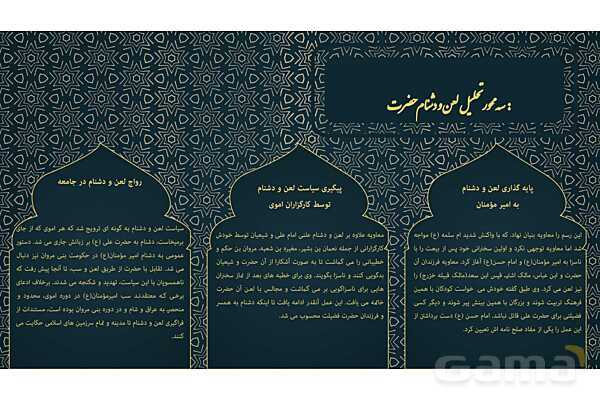 سه محور تحلیل لعن و دشنام حضرت :
پایه گذاری لعن و دشنام
به امیر مؤمنان
این رسم را معاویه بنیان نهاد، که با واکنش شدید ام سلمه (ع) مواجه
شد اما معاویه توجهی نکرد و اولین سخنرانی خود پس از بیعت را با
ناسزا به امیر مؤمنان(ع) و امام حسن(ع) آغاز کرد. معاویه فرزندان آن
حضرت و ابن عباس، مالک اشتر، قیس ابن سعد(مالک قبیله خزرج) را
نیز لعن می کرد. وی طبق گفته خودش می خواست کودکان با همین
فرهنگ تربیت شوند و بزرگان با همین بینش پیر شوند و دیگر کسی
فضیلتی برای حضرت علی قائل نباشد. امام حسن (ع) دست برداشتن از
این عمل را یکی از مفاد صلح نامه اش تعیین کرد.
پیگیری سیاست لعن و دشنام
توسط کارگزاران اموی
معاویه علاوه بر لعن و دشنام علنی امام علی و شیعیان توسط خودش
کارگزارانی از جمله نعمان بن بشیر، مغیره بن شعبه، مروان بن حکم و
خطبائی را می گماشت تا به صورت آشکارا از آن حضرت و شیعیان
بدگویی کنند و ناسزا بگویند. وی برای خطبه های بعد از نماز سخنران
هایی برای ناسزاگویی بر می گماشت و مجالس با لعن آن حضرت
خاتمه می یافت. این عمل آنقدر ادامه یافت تا اینکه دشنام به همسر
و فرزندان حضرت فضیلت محسوب می شد.
رواج لعن و دشنام در جامعه
سیاست لعن و دشنام به گونه ای ترویج شد که هر اموی که از جای
برمیخاست، دشنام به حضرت علی (ع) بر زبانش جاری می شد. دستور
عمومی به دشنام امیر مؤمنان(ع) در حکومت بنی مروان نیز دنبال
می شد. تقابل با حضرت از طریق لعن و سب، تا آنجا پیش رفت که
ناهمسویان با این سیاست، تهدید و شکنجه می شدند. برخلاف ادعای
برخی که معتقدند سب امیرمؤمنان(ع) در دوره اموی، محدود و
منحصر به عراق و شام و در دوره بنی مروان بوده است، مستندات از
فراگیری لعن و دشنام تا مدینه و تمام سرزمین های اسلامی حکایت می
کنند.
Gama